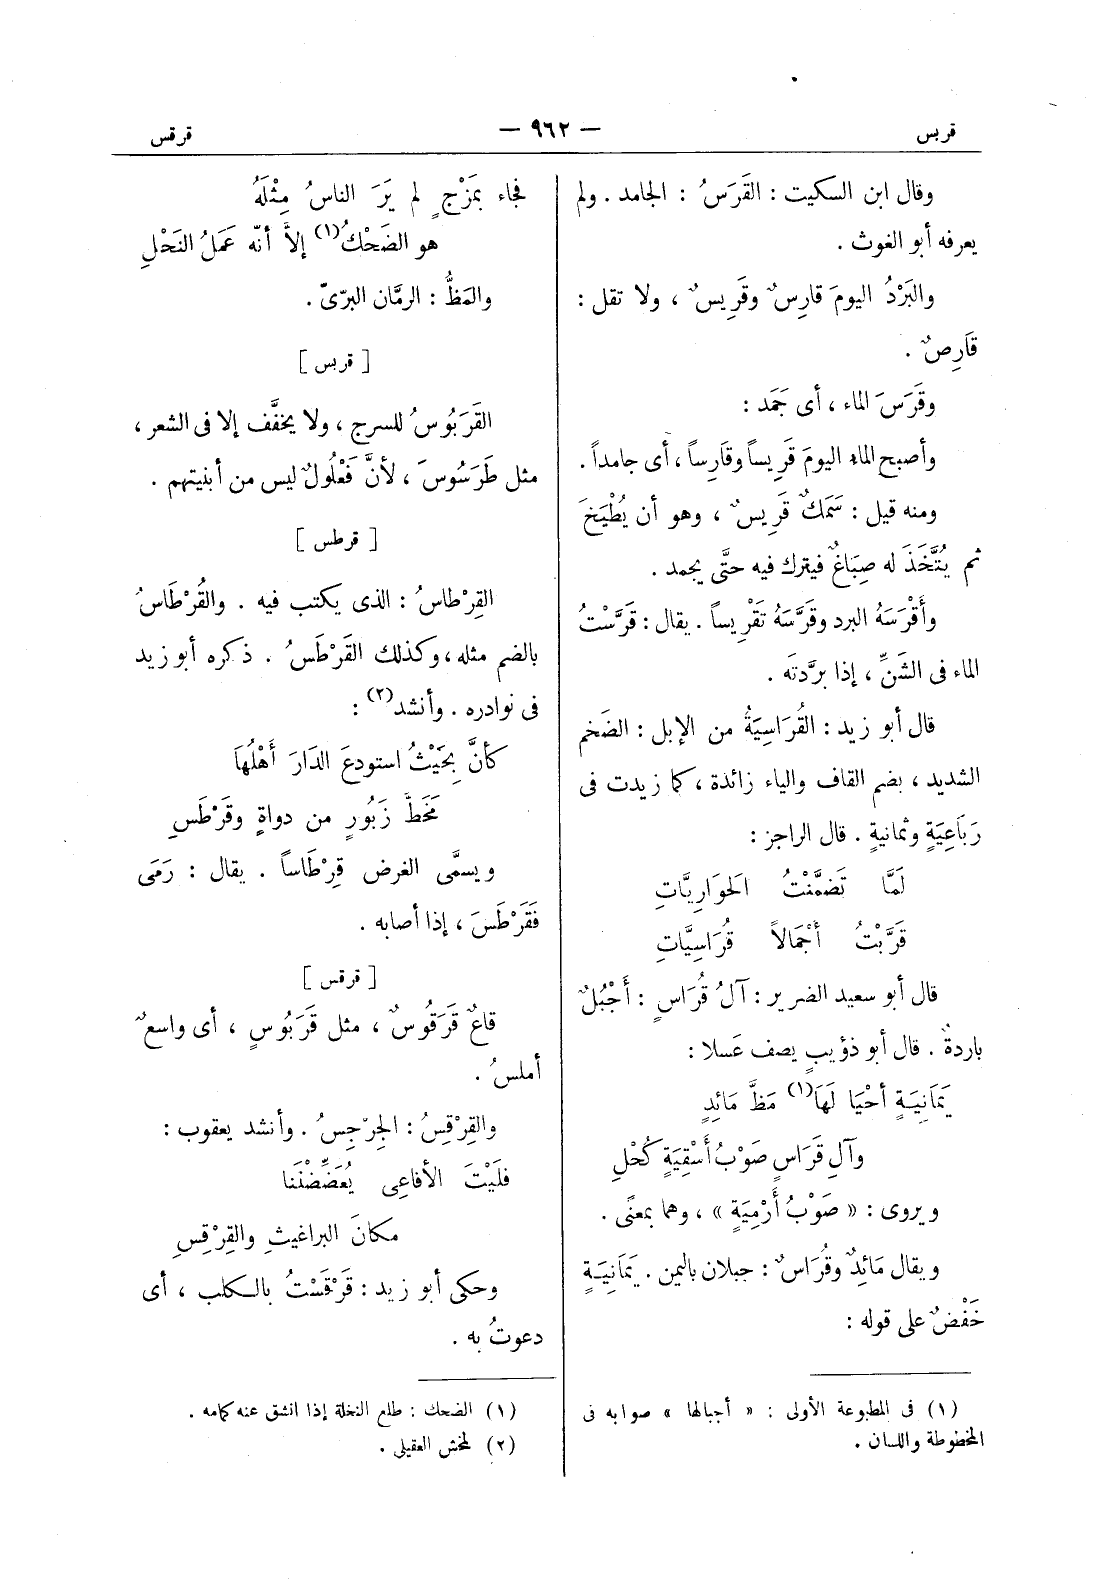 قربس
— ٩٦٢ —
قرقس
وقال ابن السكيت : القَرَسُ : الجامد . ولم
يعرفه أبو الغوث .
والبَرْدُ اليومَ قارِسٌ وقَرِيسٌ ، ولا تقل :
قَارِصٌ .
وقَرَسَ الماء ، أى جَمَد :
وأصبح الماء اليومَ قَرِيساً وقَارِساً ، أى جامداً .
ومنه قيل : سَمَكٌ قَرِيسٌ ، وهو أن يُطْبَخَ
ثم يُتَّخَذَ له صِبَاغٌ فيترك فيه حتَّى يجمد .
وأَقْرَسَهُ البرد وقَرَّسَهُ تَقْرِيساً . يقال : قَرَّسْتُ
الماء فى الشَنِّ ، إذا برَّدتَه .
قال أبو زيد : القُرَاسِيَةُ من الإبل : الضَخم
الشديد ، بضم القاف والياء زائدة ، كما زيدت فى
رَبَاعِيَةٍ وثمانيةٍ . قال الراجز :
لَمَّا تَضَمَّنْتُ الحَوَارِيَّاتِ
قَرَّبْتُ أَجْمَالاً قُرَاسِيَّاتِ
قال أبو سعيد الضرير : آلُ قُرَاسٍ : أَجْبُلٌ
باردةٌ . قال أبو ذؤيبٍ يصف عَسلا :
يَمَانِيَةٍ أَحْيَا لَهَا(١) مَظَّ مَائِدٍ
وآلِ قَرَاسٍ صَوْبُ أَسْقِيَةٍ كُحْلِ
ويروى : « صَوْبُ أَرْمِيَةٍ » ، وهما بمعنًى .
ويقال مَائِدٌ وقُرَاسٌ : جبلان باليمن . يَمَانِيَةٍ
خَفْضٌ على قوله :
(١) فى المطبوعة الأولى : « أجبالها » صوابه فى
المخطوطة واللسان .
فجاء بمَزْجٍ لم يَرَ الناسُ مِثْلَهُ
هو الضَحْكُ(١) إلاَّ أنَّه عَمَلُ النَحْلِ
والمَظُّ : الرمَّان البرّىّ .
[ قربس ]
القَرَبُوسُ للسرج ، ولا يخفَّف إلا فى الشعر ،
مثل طَرَسُوسَ ، لأنَّ فَعْلُولٌ ليس من أبنيتهم .
[ قرطس ]
القِرْطاسُ : الذى يكتب فيه . والقُرْطَاسُ
بالضم مثله ، وكذلك القَرْطَسُ . ذكره أبو زيد
فى نوادره . وأنشد(٢) :
كأنَّ بِحَيْثُ استودعَ الدَارَ أَهْلُهَا
مَخَطَّ زَبُورٍ من دواةٍ وقَرْطَسِ
ويسمَّى الغرض قِرْطَاساً . يقال : رَمَى
فَقَرْطَسَ ، إذا أصابه .
[ قرقس ]
قاعٌ قَرَقُوسٌ ، مثل قَرَبُوسٍ ، أى واسعٌ
أملسُ .
والقِرْقِسُ : الجِرْجِسُ . وأنشد يعقوب :
فلَيْتَ الأفاعِى يُعَضِّضْنَنا
مكانَ البراغيثِ والقِرْقِسِ
وحكى أبو زيد : قَرْقَسْتُ بالكلب ، أى
دعوتُ به .
(١) الضحك : طلع النخلة إذا انشق عنه كمامه .
(٢) لمخش العقيلى .